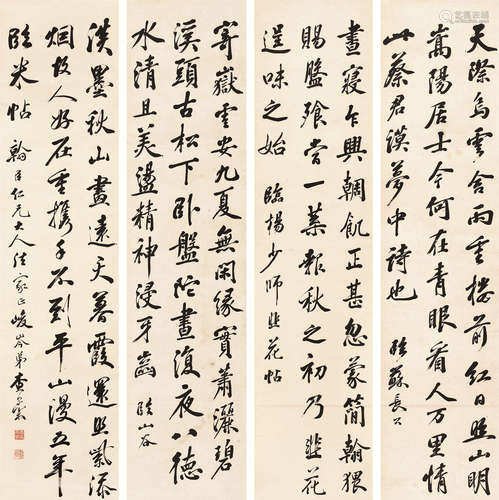 天際烏雲含雨重樓前紅日照山明
嵩陽居士今何在青眼看人万里情
此蔡君謨夢中詩也 臨蘇長公
晝寢乍興輖飢正甚忽蒙簡翰猥
賜盤飧當一葉報秋之初乃韭花
逞味之始 臨楊少師韭花帖
寄嶽雲安九夏無閑緣實蕭灑碧
溪頭古松下臥盤陀晝復夜八德
水清且美盪精神浸牙齒 臨山谷
淡墨秋山畫遠天暮霞還照紫添
烟故人好在重攜手不到平山漫五年
臨米帖 翰臣仁兄大人法家正 峻岑弟黃